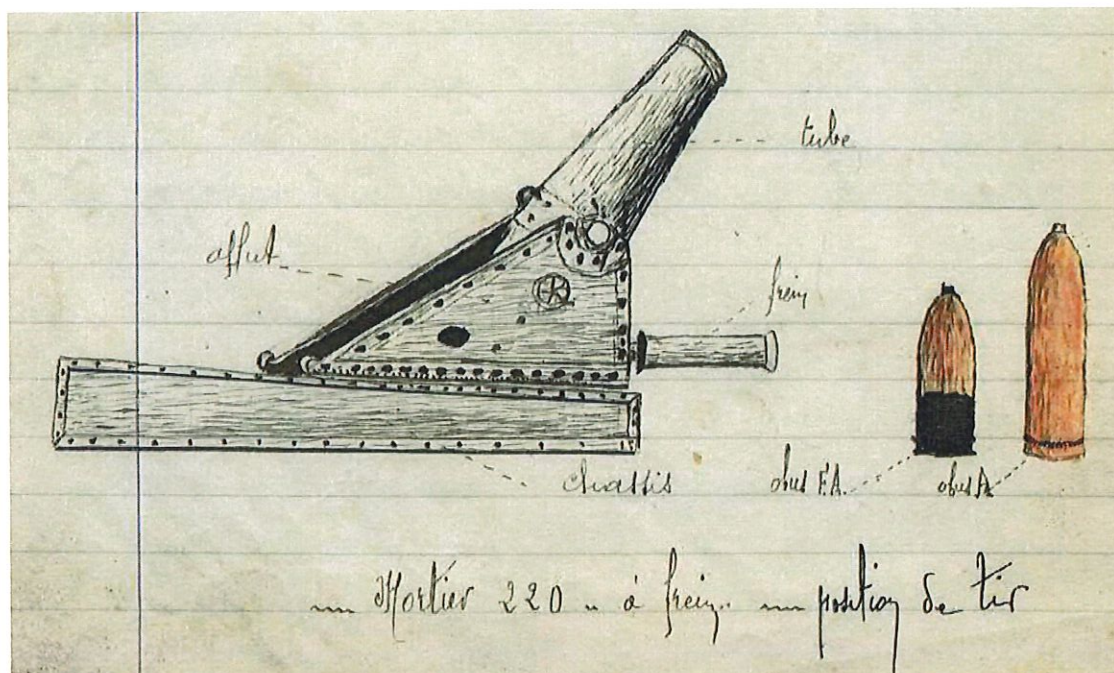 tube
affut
frein
chassis
obus F.A.
obus A
Mortier 220 " à frein. position de tir